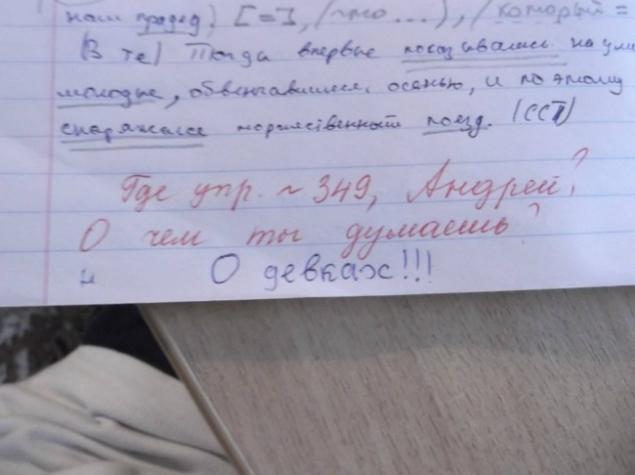 наш прадед) [=], (что...), (который =
(В те) Тогда впервые показывались на ули
молодые, обвенчавшиеся осенью, и поэтому
снаряжался торжественный поезд. (ССП)
Где упр. ~ 349, Андрей?
О чем ты думаешь?
О девках!!!